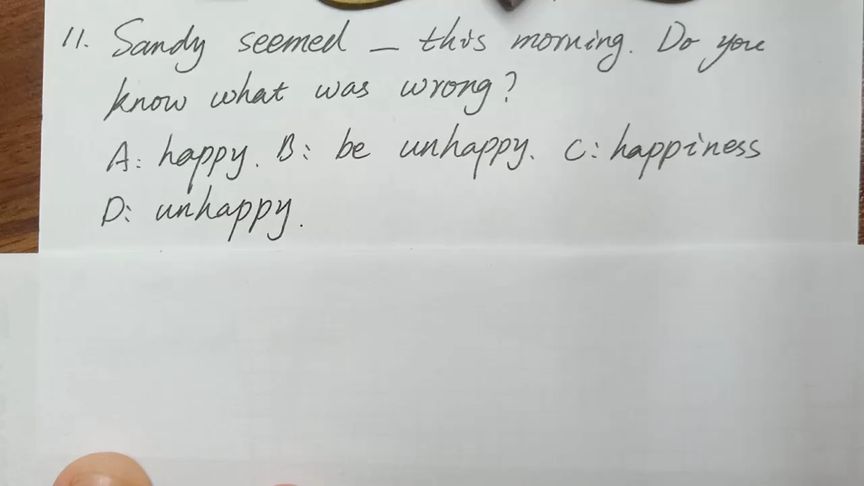 11. Sandy seemed _ this morning. Do you
know what was wrong?
A: happy. B: be unhappy. C: happiness
D: unhappy.